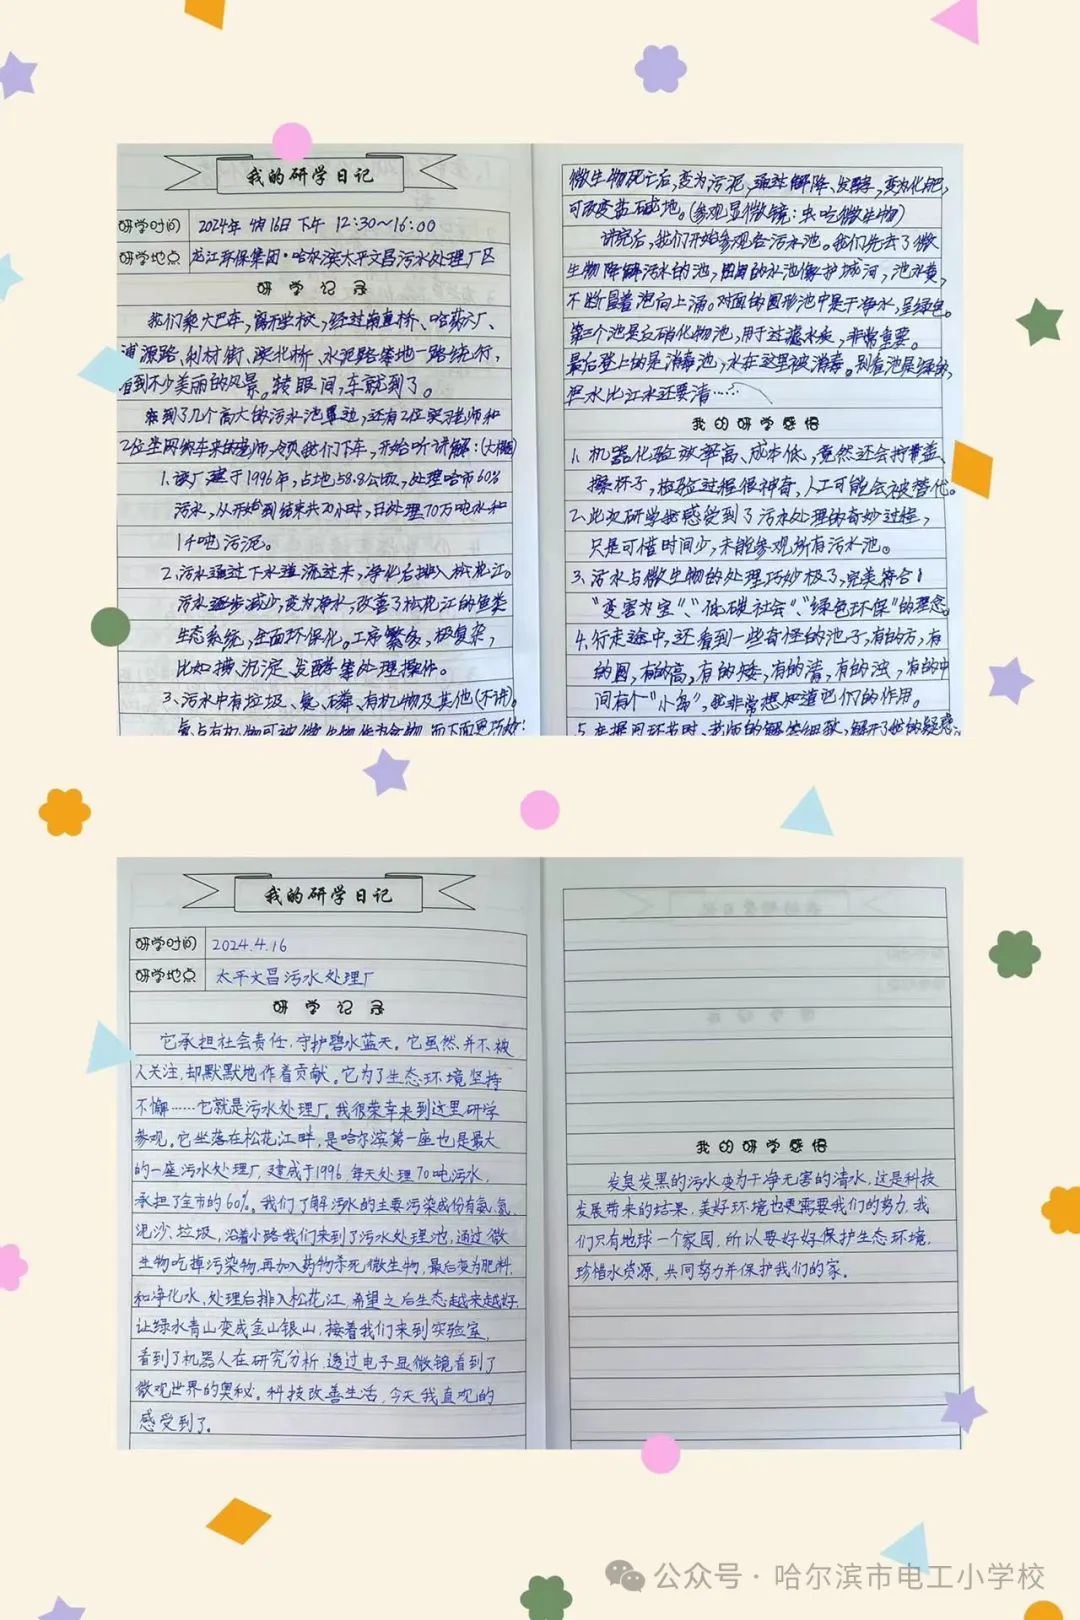 我的研学日记
研学时间 2024年4月16日下午 12:30~16:00
研学地点 龙江环保集团·哈尔滨太平文昌污水处理厂区
研学记录
我们乘大巴车,离开学校,经过南直桥、哈药六厂、
浦源路、利材街、滨北桥、水泥路等地一路绕行,
看到不少美丽的风景。转眼间,车就到了。
来到了几个高大的污水池旁边,还有2位实习老师和
2位坐网约车来的老师,领我们下车,开始听讲解:(大概)
1.该厂建于1996年,占地58.8公顷,处理哈市60%
污水,从开始到结束共20小时,日处理70万吨水和
1千吨污泥。
2.污水通过下水道流过来,净化后排入松花江。
污水逐步减少,变为净水,改善了松花江的鱼类
生态系统,全面环保化。工序繁多,极复杂,
比如捞、沉淀、发酵等处理操作。
3.污水中有垃圾、氨、磷、有机物及其他(不讲)。
氨与有机物可被微生物作为食物,而下面更巧妙:
微生物死亡后,变为污泥,通过解降、发酵,变为化肥,
可改变盐碱地。(参观显微镜:虫吃微生物)
讲完后,我们开始参观各污水池。我们先去了微
生物降解污水的池,四周的水池像护城河,池水黄,
不断冒着泡向上涌。对面的圆形池中是干净水,呈绿色。
第三个池是反硝化物池,用于过滤水质,非常重要。
最后登上的是消毒池,水在这里被消毒。别看池是绿的,
但水比江水还要清……
我的研学感悟
1.机器化验效率高、成本低,竟然还会拧瓶盖、
擦杯子,检验过程很神奇,人工可能会被替代。
2.此次研学我感受到了污水处理的奇妙过程,
只是可惜时间少,未能参观所有污水池。
3.污水与微生物的处理巧妙极了,完美符合了
“变害为宝”、“低碳社会”、“绿色环保”的理念。
4.行走途中,还看到一些奇怪的池子,有的方,有
的圆,有的高,有的矮,有的清,有的浊,有的中
间有个“小岛”,我非常想知道它们的作用。
5.在提问环节时,老师的解答细致,解开了我的疑惑,
我的研学日记
研学时间 2024.4.16
研学地点 太平文昌污水处理厂
研学记录
它承担社会责任,守护碧水蓝天。它虽然并不被
人关注,却默默地作着贡献。它为了生态环境坚持
不懈……它就是污水处理厂。我很荣幸来到这里研学
参观。它坐落在松花江畔,是哈尔滨第一座也是最大
的一座污水处理厂,建成于1996,每天处理70吨污水,
承担了全市的60%。我们了解污水的主要污染成份有氨、氮、
泥沙、垃圾,沿着小路我们来到了污水处理池,通过微
生物吃掉污染物,再加入药物杀死微生物,最后变为肥料
和净化水,处理后排入松花江,希望之后生态越来越好,
让绿水青山变成金山银山,接着我们来到实验室,
看到了机器人在研究分析,透过电子显微镜看到了
微观世界的奥秘。科技改善生活,今天我直观的
感受到了。
我的研学感悟
发臭发黑的污水变为干净无害的清水,这是科技
发展带来的结果,美好环境也更需要我们的努力,我
们只有地球一个家园,所以要好好保护生态环境,
珍惜水资源,共同努力并保护我们的家。
公众号·哈尔滨市电工小学校